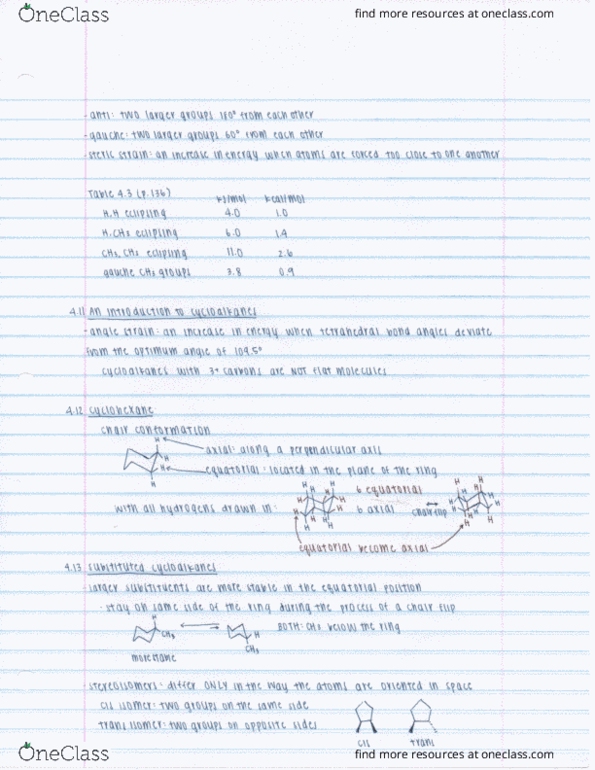 OneClass
find more resources at oneclass.com
- anti: two larger groups 180° from each other
- gauche: two larger groups 60° from each other
- steric strain: an increase in energy when atoms are forced too close to one another
Table 4.3 (p.136) kJ/mol kcal/mol
H,H eclipling 4.0 1.0
H,CH3 eclipling 6.0 1.4
CH3,CH3 eclipling 11.0 2.6
gauche CH3 groups 3.8 0.9
4.11 An introduction to cycloalkanes
- angle strain: an increase in energy when tetrahedral bond angles deviate
from the optimum angle of 109.5°
cycloalkanes with 3+ carbons are NOT flat molecules
4.12 cyclohexane
chair conformation
H
axial: along a perpendicular axis
H
H
equatorial: located in the plane of the ring
H
with all hydrogens drawn in:
6 equatorial
6 axial
chair flip
equatorial become axial
4.13 substituted cycloalkanes
- larger substituents are more stable in the equatorial position
- stay on same side of the ring during the process of a chair flip
H
CH3
H
CH3
BOTH: CH3 below the ring
more stable
- stereoisomers: differ ONLY in the way the atoms are oriented in space
cis isomer: two groups on the same side
trans isomer: two groups on opposite sides
cis trans
OneClass
find more resources at oneclass.com